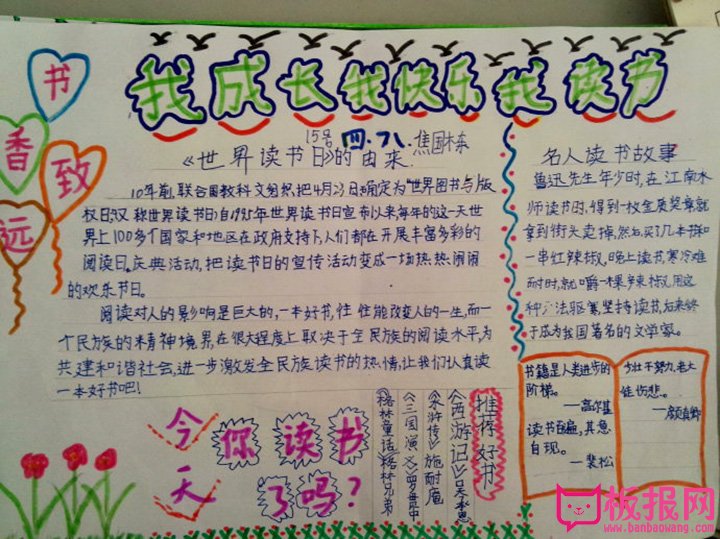 我成长我快乐我读书
书
香
致
远
15号 四.7八 焦国栋
《世界读书日》的由来
10年前,联合国教科文组织,把4月23日确定为"世界图书与版
权日"又称世界读书日:自1995年世界读书日宣布以来每年的这一天世
界上100多个国家和地区在政府支持下,人们都在开展丰富多彩的
阅读日庆典活动,把读书日的宣传活动变成一场热热闹闹
的欢乐节日。
阅读对人的影响是巨大的,一本好书,往往能改变人的一生,而一
个民族的精神境界,在很大程度上取决于全民族的阅读水平,为
共建和谐社会,进一步激发全民族读书的热情,让我们认真读
一本好书吧!
名人读书故事
鲁迅先生年少时,在江南水
师读书时,得到一枚金质奖章,就
拿到街头卖掉,然后买了几本书和
一串红辣椒,晚上读书寒冷难
耐时,就嚼一棵辣椒,用这
种办法驱寒坚持读书,后来终
于成为我国著名的文学家。
书籍是人类进步的
阶梯。
——高尔基
读书百遍,其意
自现。
—裴松
少壮不努力,老大
徒伤悲。
——颜真卿
推荐好书
《西游记》吴承恩
《水浒传》施耐庵
《三国演义》罗贯中
《格林童话》格林兄弟
今天
你读书
了吗?
板报网
www.banbaowang.com